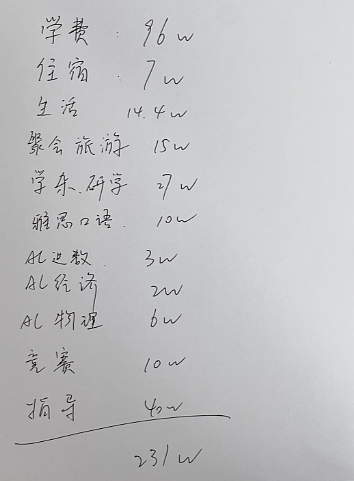 学费 : 96w
住宿 : 7w
生活 14.4w
聚会旅游 15w
学杂.研学 27w
雅思口语. 10w
AL进数. 3w
AL经济 2w
AL物理 6w
竞赛 10w
指导 40w
231w